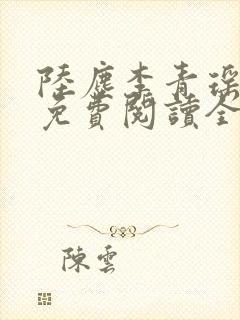 陸塵李青瑤
免費閱讀全
陳雲